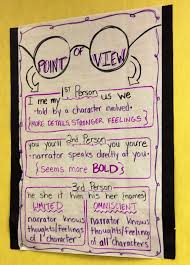 POINT OF VIEW
1st Person
I me my us we
told by a character involved.
(MORE DETAILS, STRONGER FEELINGS)
2nd Person
you you'll you you're
narrator speaks directly at you
(seems more BOLD)
3rd Person
he she it him his her (names)
LIMITED
narrator knows
thoughts/feelings
of 1 character
OMNISCIENT
narrator knows
thoughts/feelings
of all characters